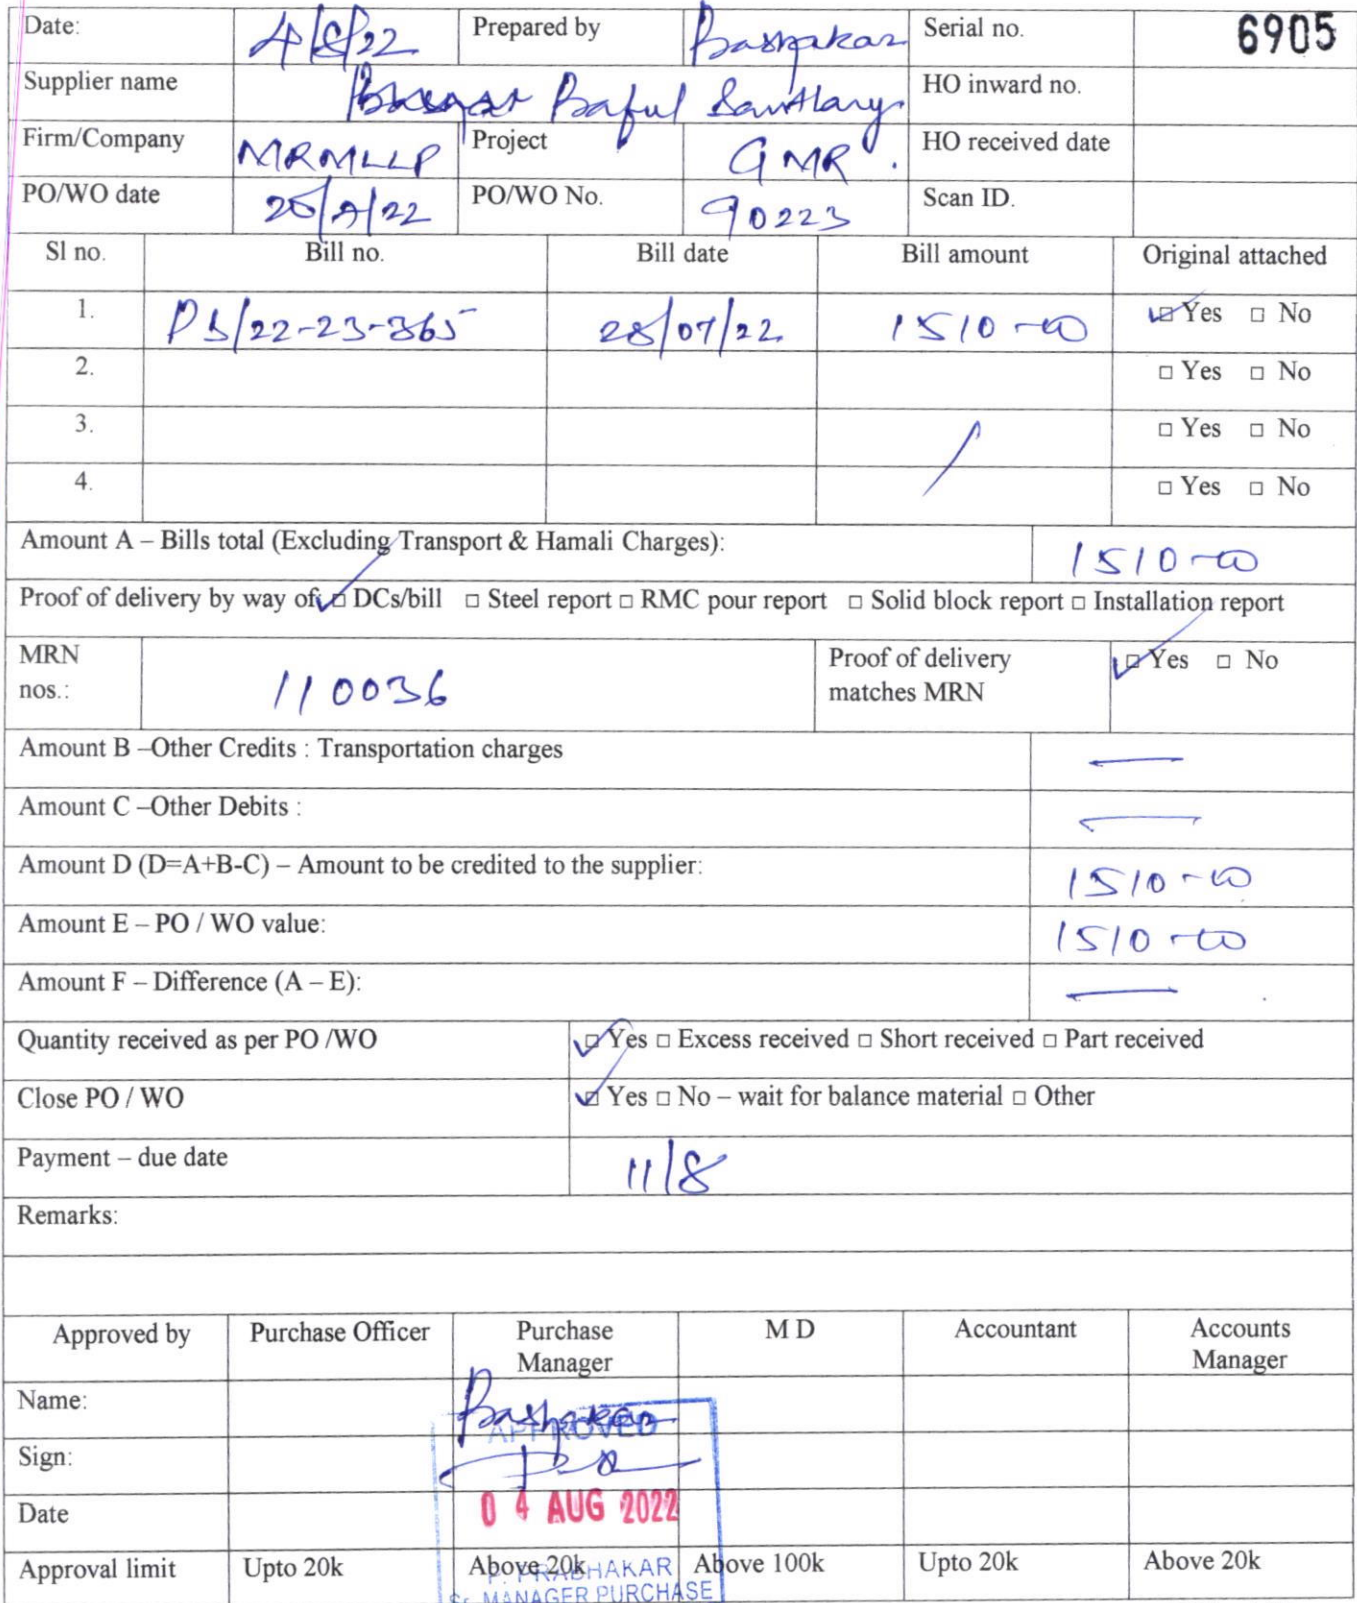 Date: 4/8/22 Prepared by Serial no. 6905
Supplier name HO inward no.
Firm/Company MRMLLP Project GMR . HO received date
PO/WO date /22 PO/WO No. 90223 Scan ID.
Sl no. Bill no. Bill date Bill amount Original attached
1. PS/22-23-365 28/07/22 1510-00 ☑ Yes □ No
2. □ Yes □ No
3. □ Yes □ No
4. □ Yes □ No
Amount A – Bills total (Excluding Transport & Hamali Charges): 1510-00
Proof of delivery by way of: ☑ DCs/bill □ Steel report □ RMC pour report □ Solid block report □ Installation report
MRN nos.: 110036 Proof of delivery matches MRN ☑ Yes □ No
Amount B –Other Credits : Transportation charges —
Amount C –Other Debits : —
Amount D (D=A+B-C) – Amount to be credited to the supplier: 1510-00
Amount E – PO / WO value: 1510-00
Amount F – Difference (A – E): —
Quantity received as per PO /WO ☑ Yes □ Excess received □ Short received □ Part received
Close PO / WO ☑ Yes □ No – wait for balance material □ Other
Payment – due date 11/8
Remarks:
Approved by Purchase Officer Purchase Manager M D Accountant Accounts Manager
Name:
APPROVED
Sign:
Date 04 AUG 2022
Approval limit Upto 20k Above 20k Above 100k Upto 20k Above 20k
P. PRABHAKAR
Sr. MANAGER PURCHASE